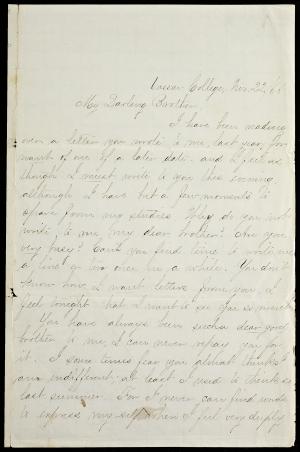 Vassar College, Nov. 22, 65
My Darling Brother.
I have been reading
over a letter you wrote to me, last year, for
want of one of a later date. and I feel as
though I must write to you this evening
although I have but a few moments to
spare from my studies. Why do you not
write to me my dear brother? Are you
very busy? Can't you find time to write me
a line or two once in a while. You don't
know how I want letters from you, I
feel tonight that I want to see you so much.
You have always been such a dear good
brother to me, I can never repay you for
it. I some times fear you almost think I
am indifferent, at least I used to think so
last summer. For I never can find words
to express my self when I feel very deeply